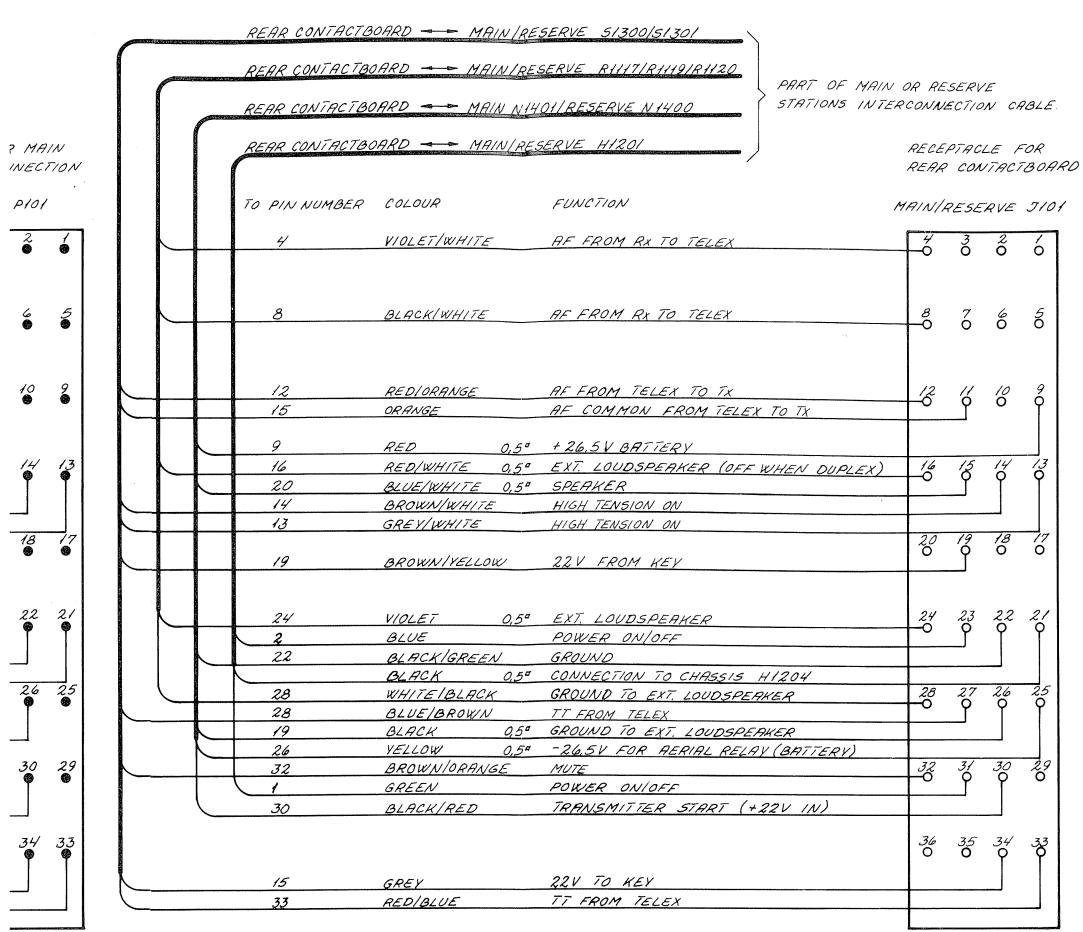 REAR CONTACTBOARD ↔ MAIN/RESERVE S1300/S1301
REAR CONTACTBOARD ↔ MAIN/RESERVE R1117/R1119/R1120
REAR CONTACTBOARD ↔ MAIN N1401/RESERVE N1400
REAR CONTACTBOARD ↔ MAIN/RESERVE H1201
PART OF MAIN OR RESERVE
STATIONS INTERCONNECTION CABLE.
R MAIN
NNECTION
P101
RECEPTACLE FOR
REAR CONTACTBOARD
MAIN/RESERVE J101
TO PIN NUMBER COLOUR FUNCTION
4 VIOLET/WHITE AF FROM Rx TO TELEX
8 BLACK/WHITE AF FROM Rx TO TELEX
12 RED/ORANGE AF FROM TELEX TO Tx
15 ORANGE AF COMMON FROM TELEX TO Tx
9 RED 0,5¤ +26.5V BATTERY
16 RED/WHITE 0,5¤ EXT. LOUDSPEAKER (OFF WHEN DUPLEX)
20 BLUE/WHITE 0,5¤ SPEAKER
14 BROWN/WHITE HIGH TENSION ON
13 GREY/WHITE HIGH TENSION ON
19 BROWN/YELLOW 22V FROM KEY
24 VIOLET 0,5¤ EXT. LOUDSPEAKER
2 BLUE POWER ON/OFF
22 BLACK/GREEN GROUND
BLACK 0,5¤ CONNECTION TO CHASSIS H1204
28 WHITE/BLACK GROUND TO EXT. LOUDSPEAKER
28 BLUE/BROWN TT FROM TELEX
19 BLACK 0,5¤ GROUND TO EXT. LOUDSPEAKER
26 YELLOW 0,5¤ -26.5V FOR AERIAL RELAY (BATTERY)
32 BROWN/ORANGE MUTE
1 GREEN POWER ON/OFF
30 BLACK/RED TRANSMITTER START (+22V IN)
15 GREY 22V TO KEY
33 RED/BLUE TT FROM TELEX
2 1
6 5
10 9
14 13
18 17
22 21
26 25
30 29
34 33
4 3 2 1
8 7 6 5
12 11 10 9
16 15 14 13
20 19 18 17
24 23 22 21
28 27 26 25
32 31 30 29
36 35 34 33